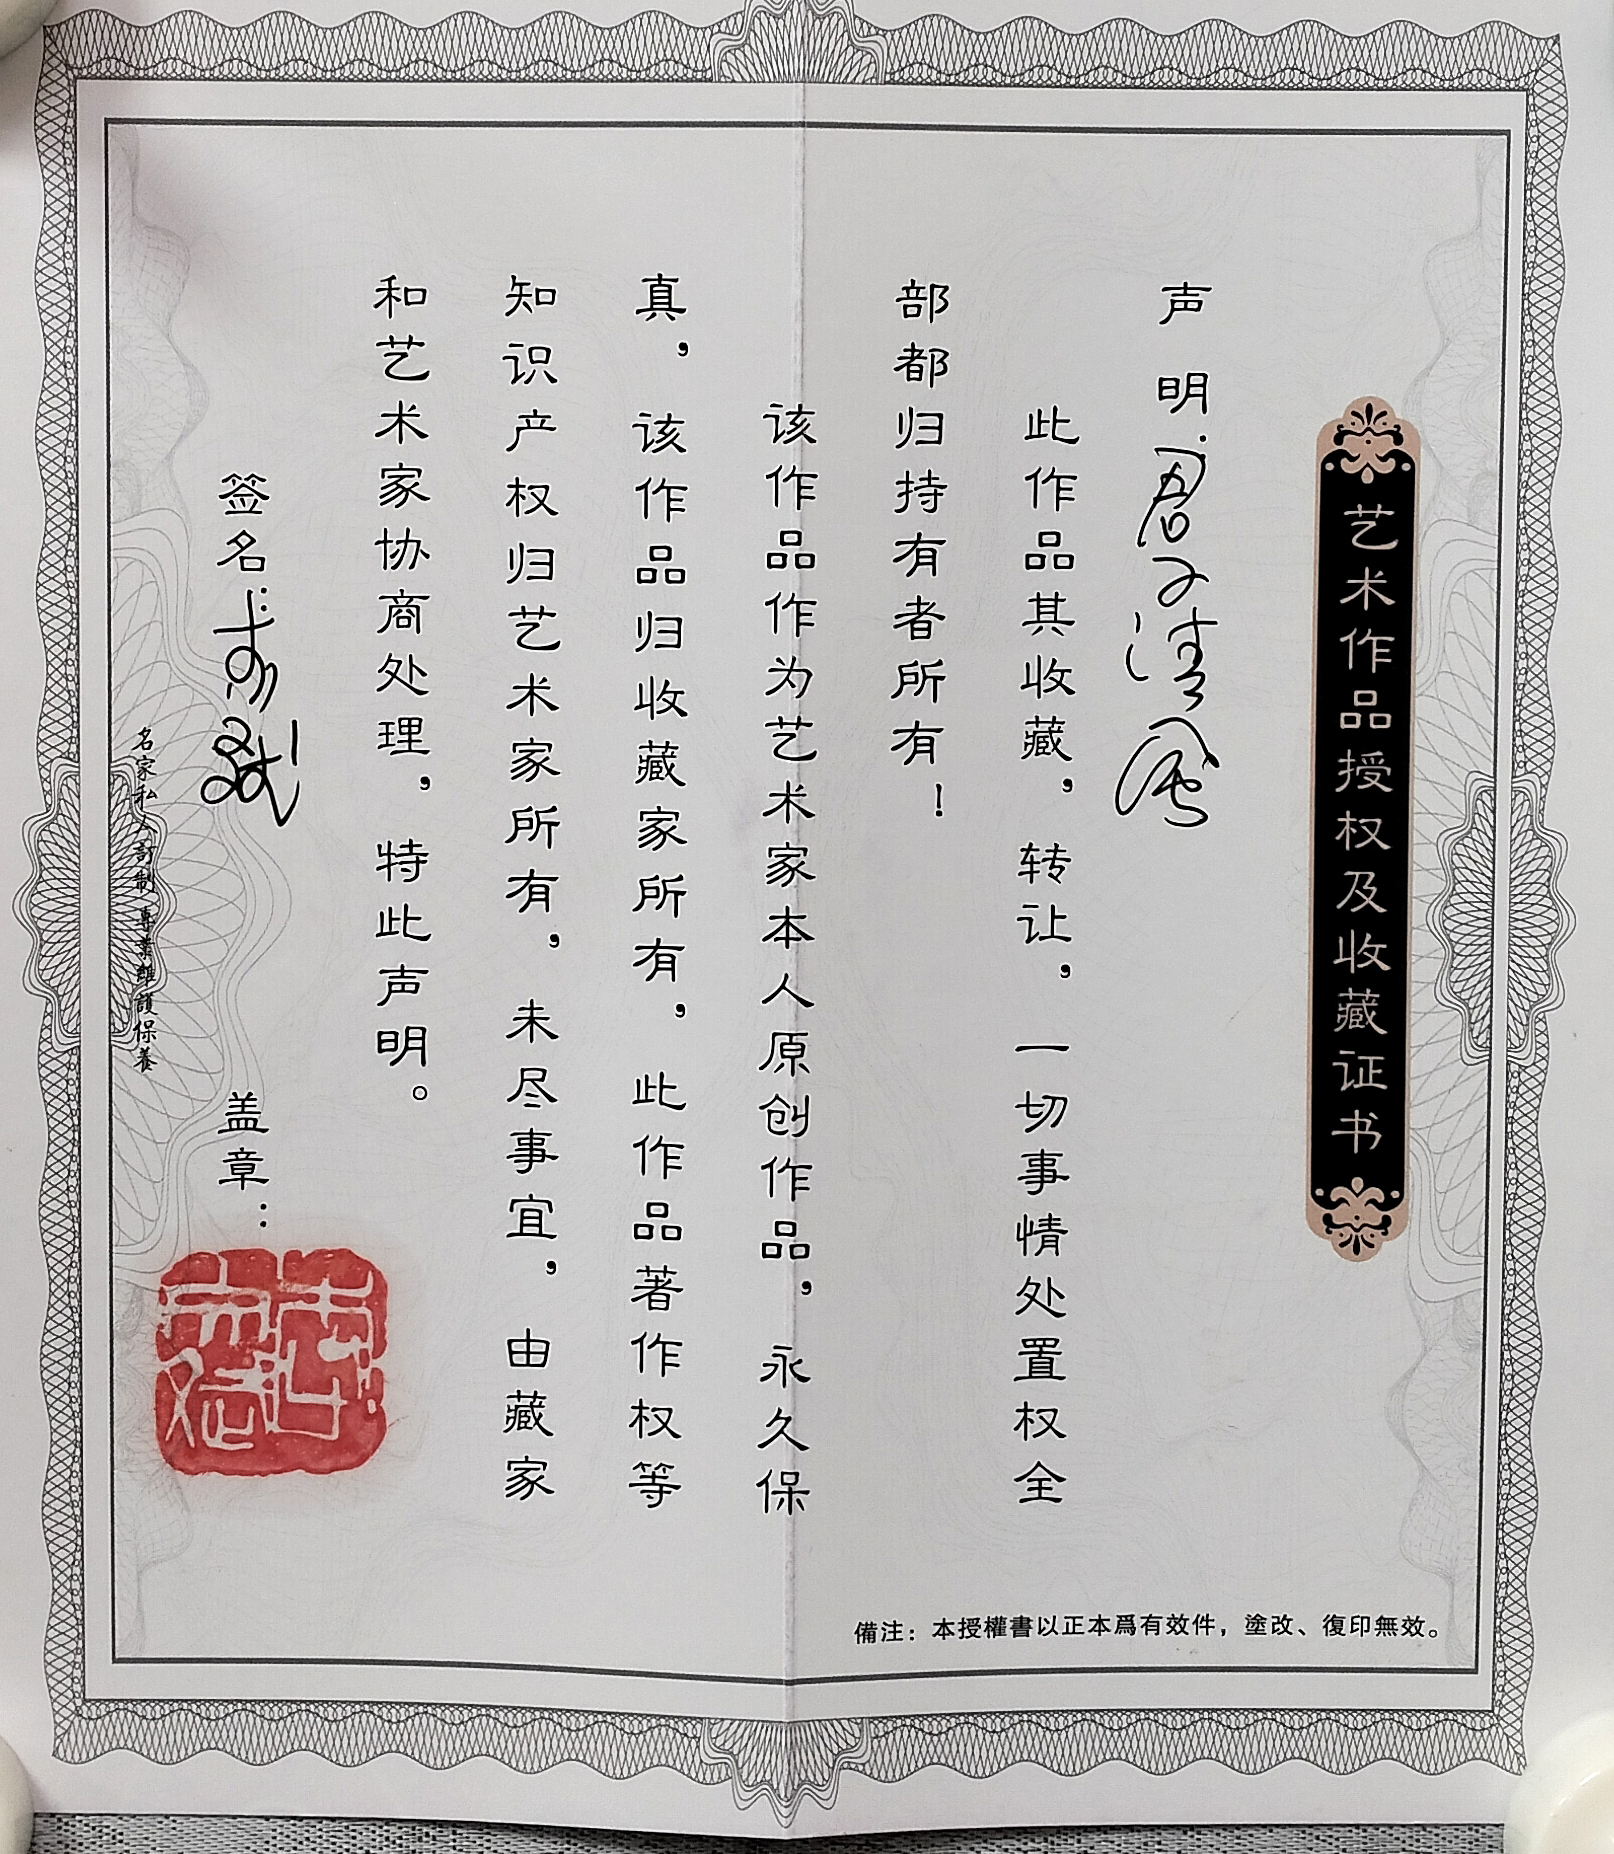 艺术作品授权及收藏证书
声明:君子清风
此作品其收藏，转让，一切事情处置权全
部都归持有者所有！
该作品作为艺术家本人原创作品，永久保
真，该作品归收藏家所有，此作品著作权等
知识产权归艺术家所有，未尽事宜，由藏家
和艺术家协商处理，特此声明。
签名： 盖章：
名家私人訂制 專業維護保養
備注：本授權書以正本爲有效件，塗改、復印無效。